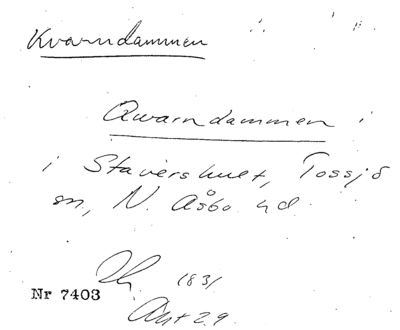 Kvarndammen
Qwarndammen i
i Stavershult, Tossjö
sn, N. Åsbo hd.
1831
Nr 7403
Akt 29